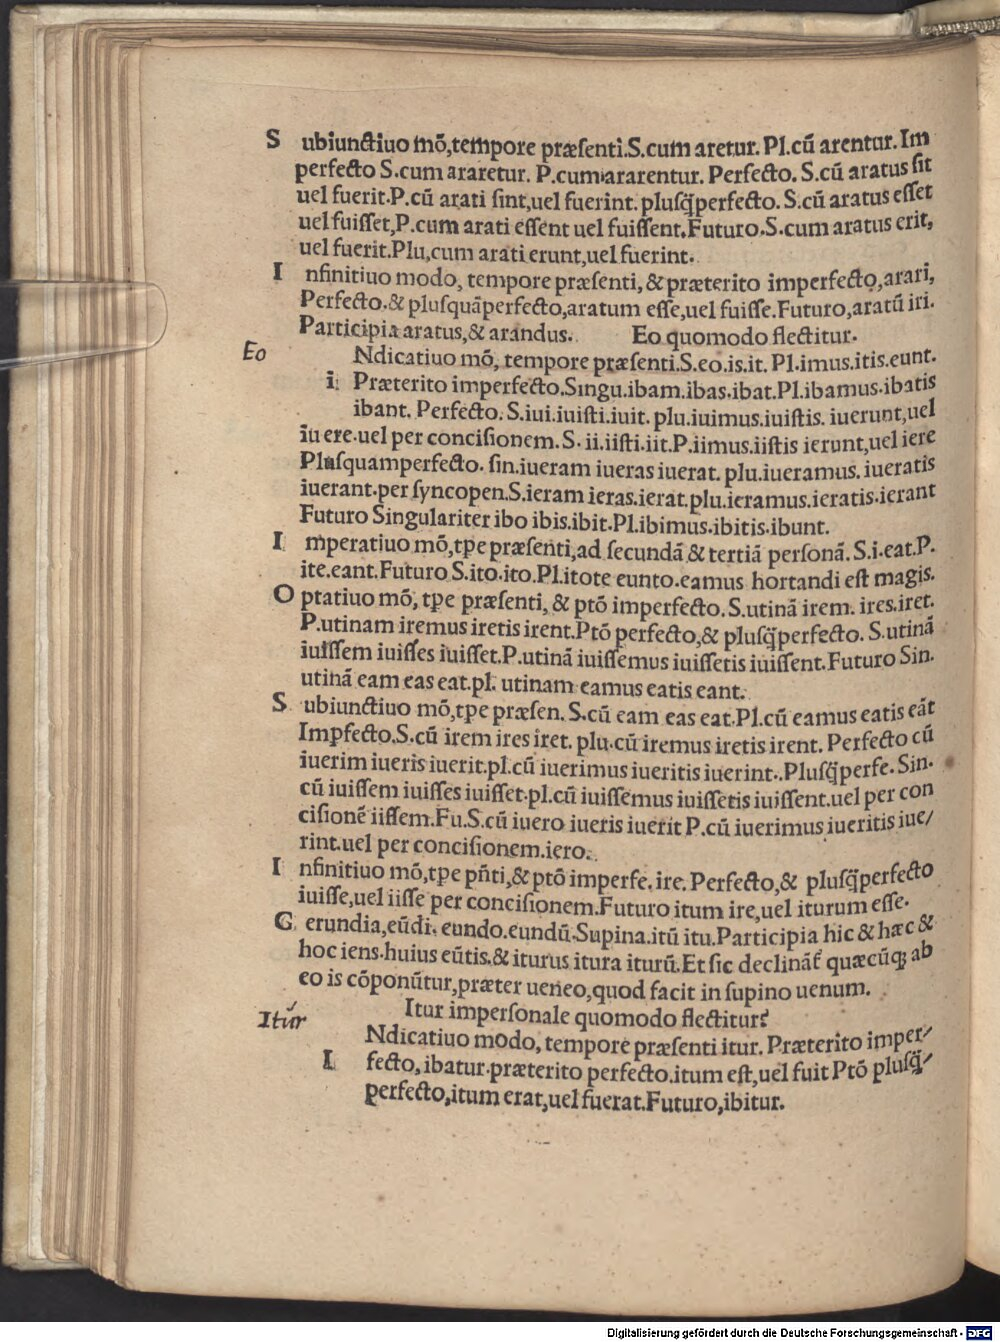 S ubiunctiuo mõ,tempore præsenti.S.cum aretur. Pl.cũ arentur. Im
perfecto S.cum araretur. P.cum ararentur. Perfecto. S.cũ aratus sit
uel fuerit.P.cũ arati sint,uel fuerint. plusq̃perfecto. S.cũ aratus esset
uel fuisset,P.cum arati essent uel fuissent.Futuro.S.cum aratus erit,
uel fuerit.Plu,cum arati erunt,uel fuerint.
I nfinitiuo modo, tempore præsenti, & præterito imperfecto,arari,
Perfecto.& plusquãperfecto,aratum esse,uel fuisse.Futuro,aratũ iri.
Participia aratus,& arandus. Eo quomodo flectitur.
Eo
Ndicatiuo mõ, tempore præsenti.S.eo.is.it. Pl.imus.itis.eunt.
i Præterito imperfecto.Singu.ibam.ibas.ibat.Pl.ibamus.ibatis
ibant. Perfecto. S.iui.iuisti.iuit. plu.iuimus.iuistis. iuerunt,uel
iuere.uel per concisionem. S. ii.iisti.iit.P.iimus.iistis ierunt,uel iere
Plusquamperfecto. sin.iueram iueras iuerat. plu.iueramus. iueratis
iuerant.per syncopen.S.ieram ieras.ierat.plu.ieramus.ieratis.ierant
Futuro Singulariter ibo ibis.ibit.Pl.ibimus.ibitis.ibunt.
I mperatiuo mõ,tpe præsenti,ad secundã & tertiã personã. S.i.eat.P.
ite.eant.Futuro S.ito.ito.Pl.itote eunto.eamus hortandi est magis.
O ptatiuo mõ, tpe præsenti, & ptõ imperfecto. S.utinã irem. ires.iret.
P.utinam iremus iretis irent.Ptõ perfecto,& plusq̃perfecto. S.utinã
iuissem iuisses iuisset.P.utinã iuissemus iuissetis iuissent.Futuro Sin.
utinã eam eas eat.pl. utinam eamus eatis eant.
S ubiunctiuo mõ,tpe præsen. S.cũ eam eas eat.Pl.cũ eamus eatis eãt
Impfecto.S.cũ irem ires iret. plu.cũ iremus iretis irent. Perfecto cũ
iuerim iueris iuerit.pl.cũ iuerimus iueritis iuerint..Plusq̃perfe.Sin.
cũ iuissem iuisses iuisset.pl.cũ iuissemus iuissetis iuissent.uel per con
cisionẽ iissem.Fu.S.cũ iuero iueris iuerit P.cũ iuerimus iueritis iue/
rint.uel per concisionem.iero.
I nfinitiuo mõ,tpe pñti,& ptõ imperfe. ire. Perfecto,& plusq̃perfecto
iuisse,uel iisse per concisionem.Futuro itum ire,uel iturum esse.
G erundia,eũdi. eundo.eundũ.Supina.itũ itu.Participia hic & hæc &
hoc iens.huius eũtis.& iturus itura iturũ.Et sic declinãt᷑ quæcũq; ab
eo is cõponũtur,præter ueneo,quod facit in supino uenum.
Itur impersonale quomodo flectitur?
Itúr
Ndicatiuo modo, tempore præsenti itur. Præterito imper/
I fecto, ibatur.præterito perfecto.itum est,uel fuit Ptõ plusq̃/
perfecto,itum erat,uel fuerat.Futuro,ibitur.
Digitalisierung gefördert durch die Deutsche Forschungsgemeinschaft - DFG